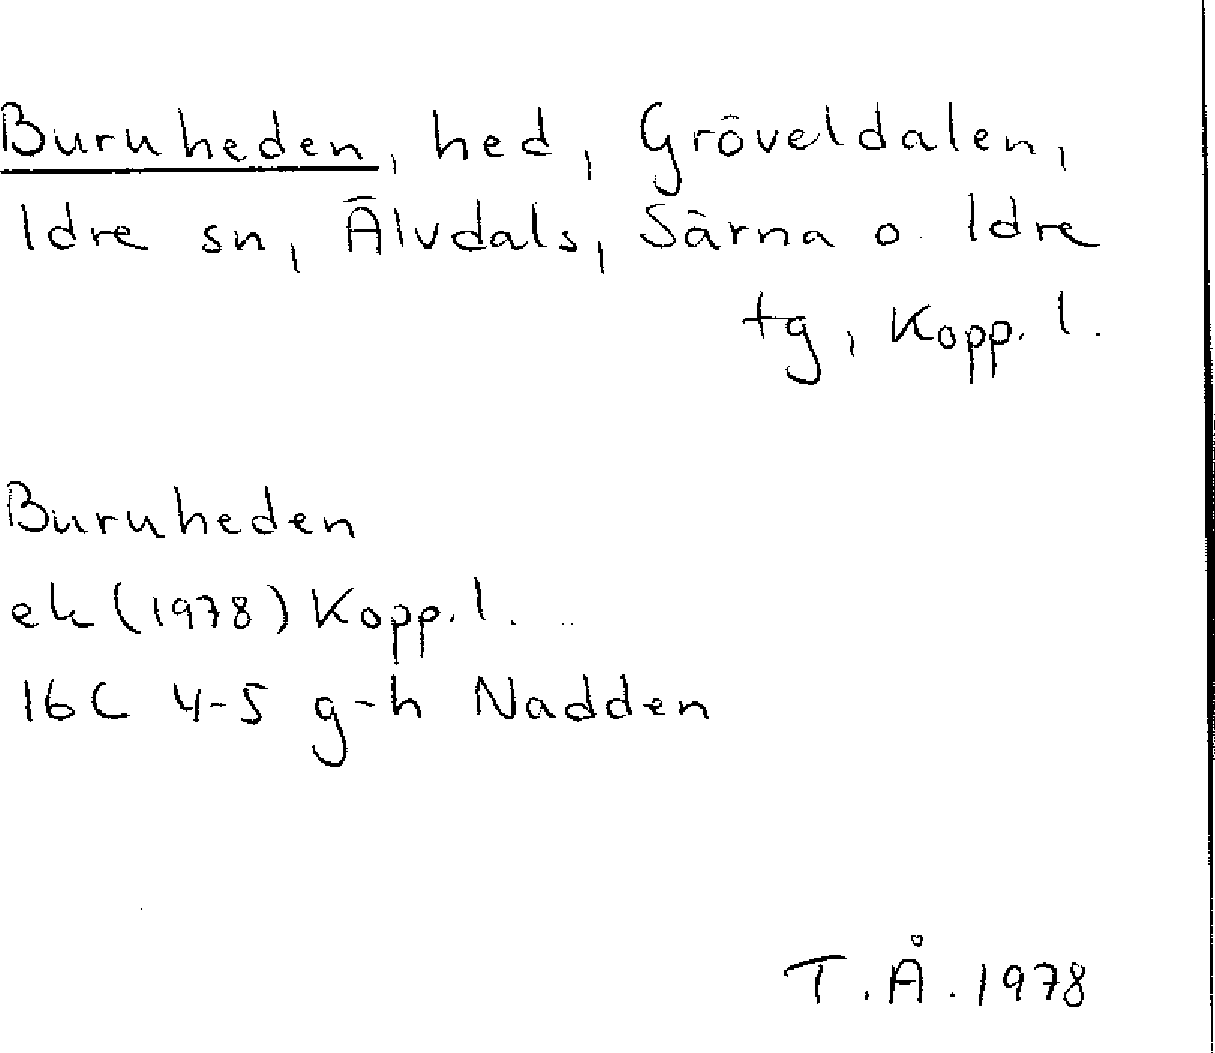 Buruheden, hed, Gröveldalen,
Idre sn, Älvdals, Särna o. Idre
tg, Kopp. l.
Buruheden
ek (1978) Kopp. l.
16C 4-5 g-h Nadden
T.Å. 1978